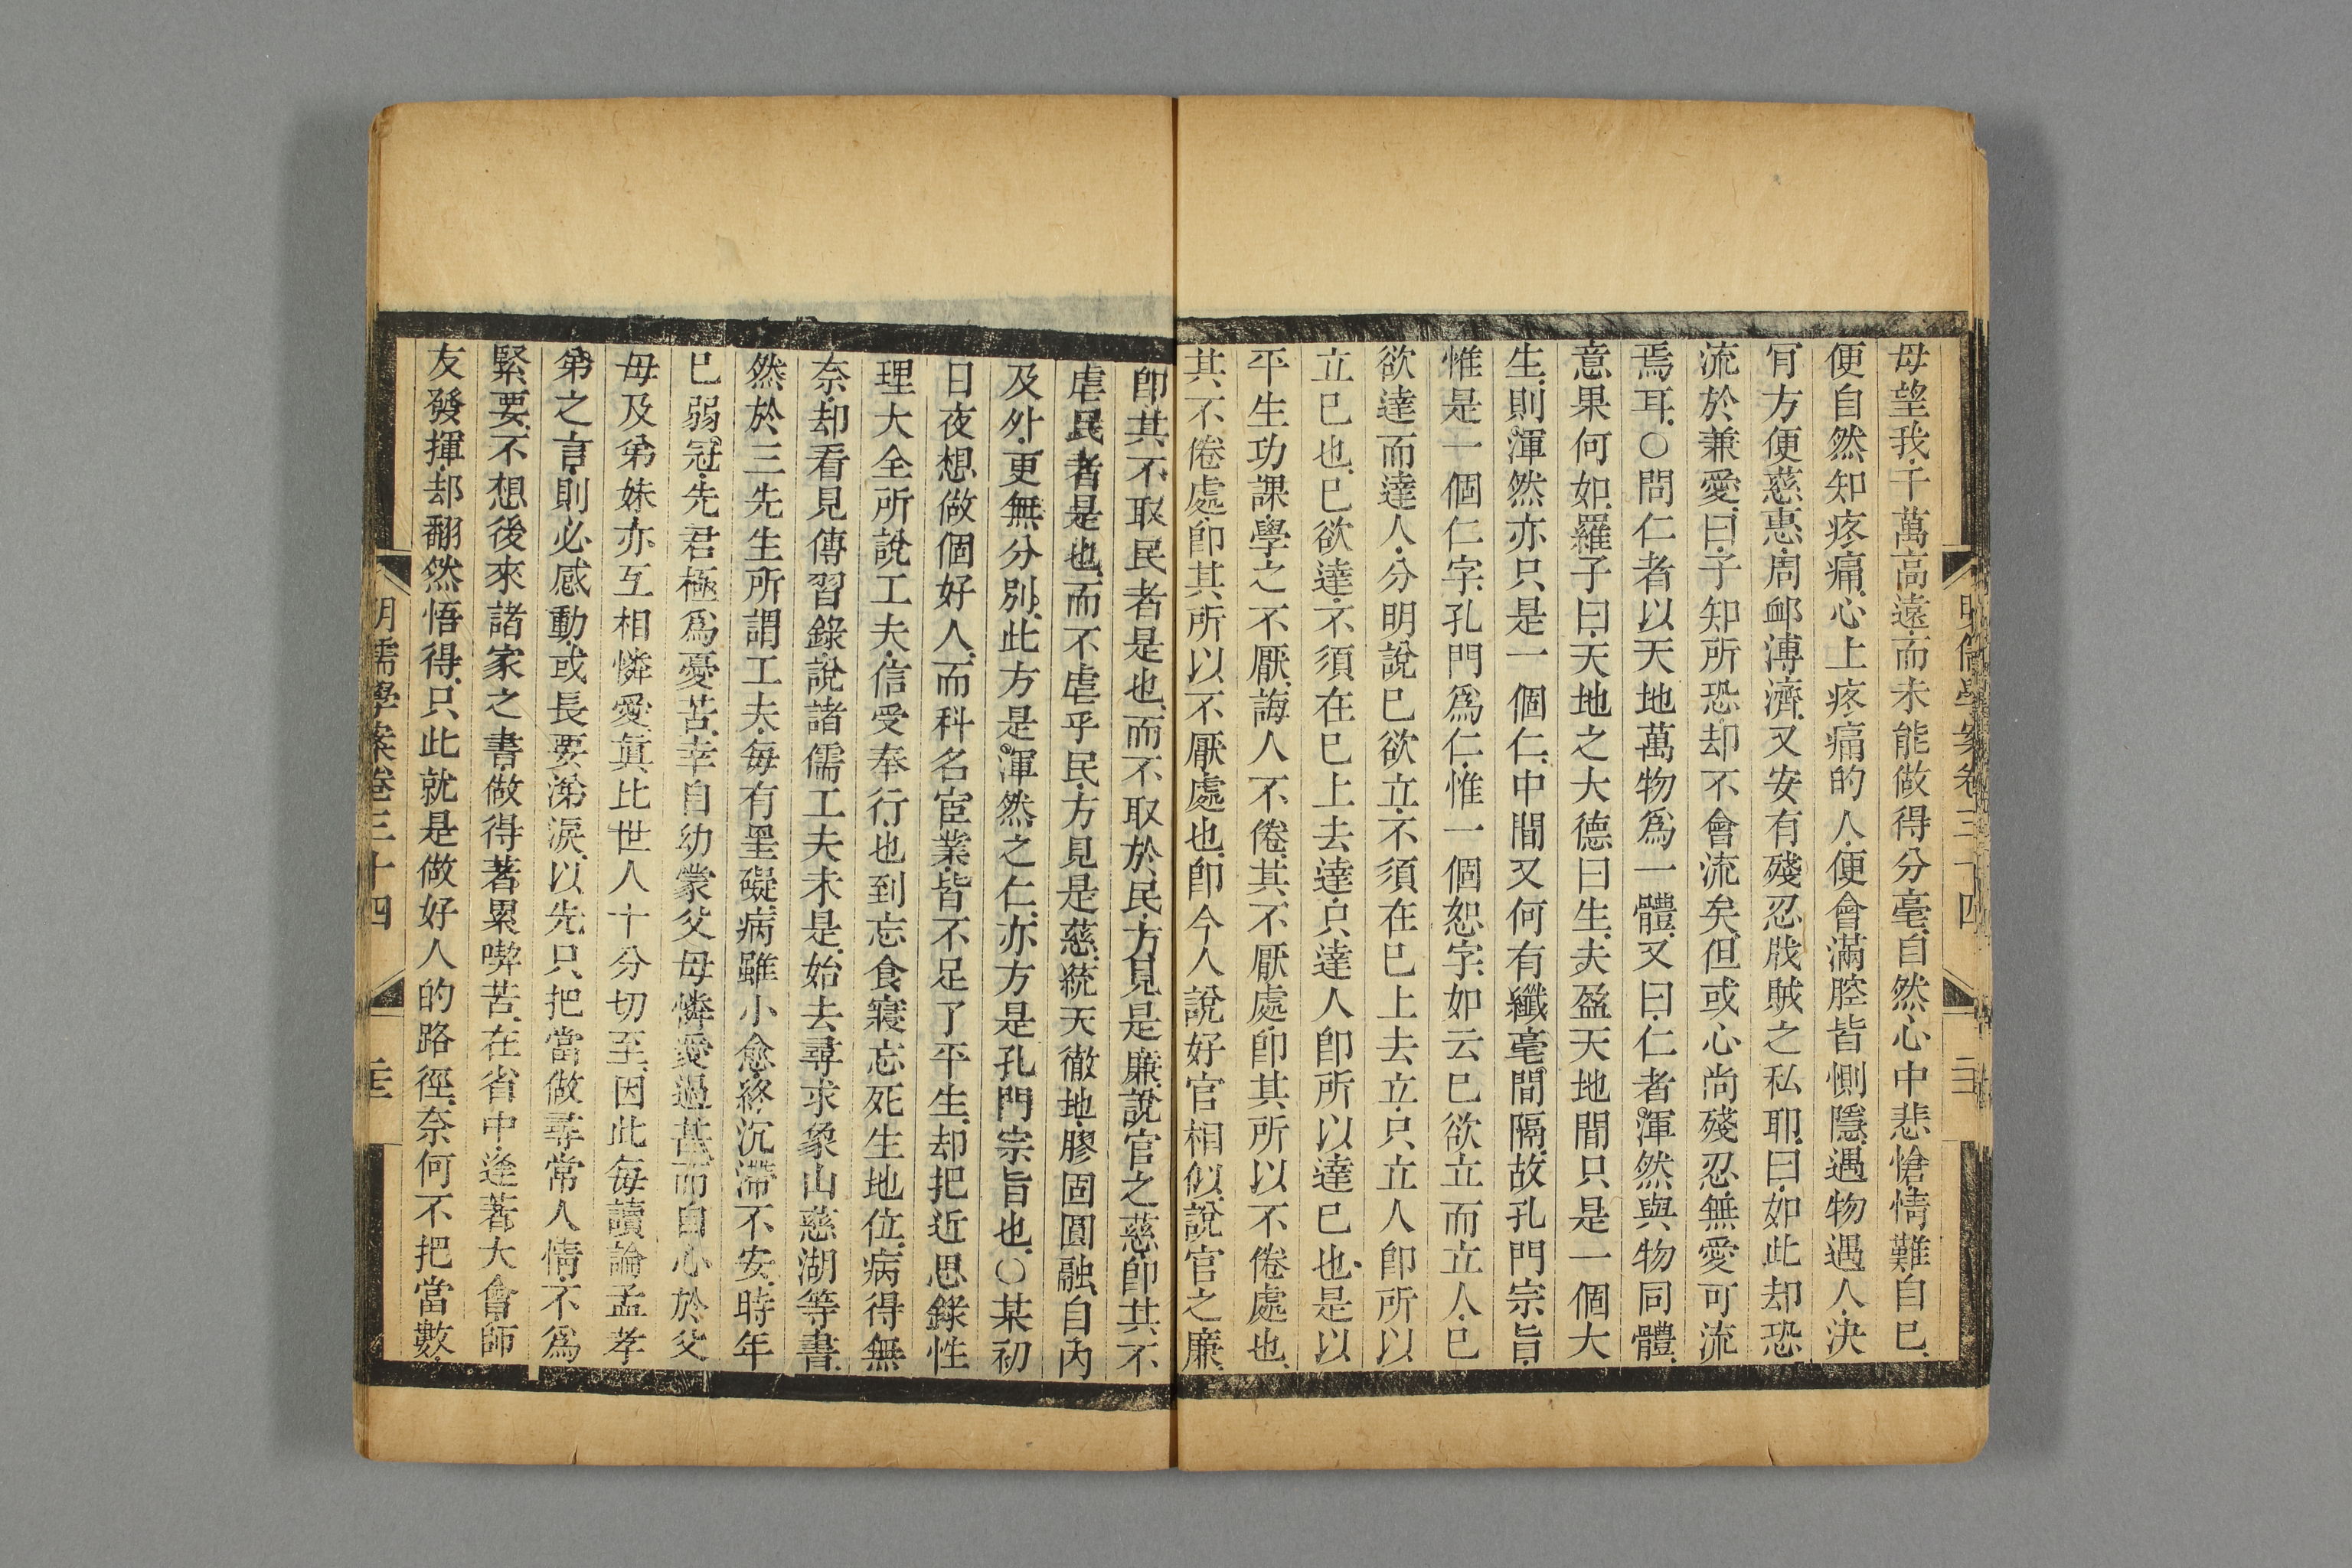 母望我千萬高遠而未能做得分毫自然心中悲愴情難自已
便自然知疼痛心上疼痛的人便會滿腔皆惻隱遇物遇人決
肎方便慈惠周䘏溥濟又安有殘忍戕賊之私耶曰如此却恐
流於兼愛曰子知所恐却不會流矣但或心尚殘忍無愛可流
焉耳○問仁者以天地萬物爲一體又曰仁者渾然與物同體
意果何如羅子曰天地之大德曰生夫盈天地間只是一個大
生則渾然亦只是一個仁中間又何有纖毫間隔故孔門宗旨
惟是一個仁字孔門爲仁惟一個恕字如云已欲立而立人已
欲達而達人分明說已欲立不須在已上去立只立人卽所以
立已也已欲達不須在已上去達只達人卽所以達已也是以
平生功課學之不厭誨人不倦其不厭處卽其所以不倦處也
其不倦處卽其所以不厭處也卽今人說好官相似說官之廉
卽其不取民者是也而不取於民方見是廉說官之慈卽其不
虐民者是也而不虐乎民方見是慈統天徹地膠固圓融自內
及外更無分別此方是渾然之仁亦方是孔門宗旨也○某初
日夜想做個好人而科名宦業皆不足了平生却把近思錄性
理大全所說工夫信受奉行也到忘食寢忘死生地位病得無
奈却看見傳習錄說諸儒工夫未是始去尋求象山慈湖等書
然於三先生所謂工夫每有罣礙病雖小愈終沉滯不安時年
已弱冠先君極爲憂苦幸自幼蒙父母憐愛過甚而自心於父
母及弟妹亦互相憐愛眞比世人十分切至因此每讀論孟孝
弟之言則必感動或長要涕淚以先只把當做尋常人情不爲
緊要不想後來諸家之書做得著累喫苦在省中逢著大會師
友發揮却翻然悟得只此就是做好人的路徑奈何不把當數
明儒學案卷三十四